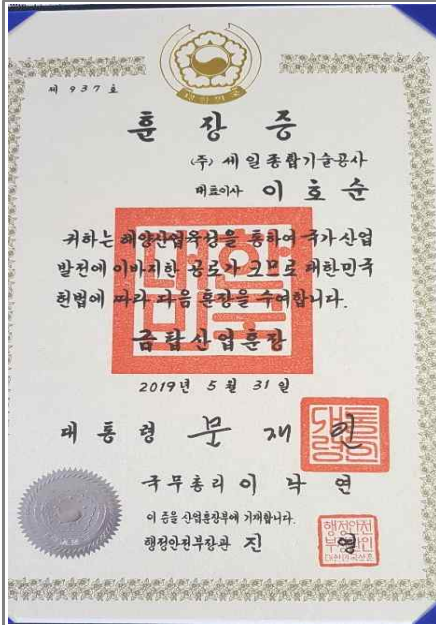 대한민국
제 937 호
훈장증
(주) 세일종합기술공사
대표이사 이호순
귀하는 해양산업육성을 통하여 국가산업
발전에 이바지한 공로가 크므로 대한민국
헌법에 따라 다음 훈장을 수여합니다.
금탑산업훈장
2019년 5월 31일
대통령 문재인
국무총리 이낙연
이 증을 산업훈장부에 기재합니다.
행정안전부장관 진영